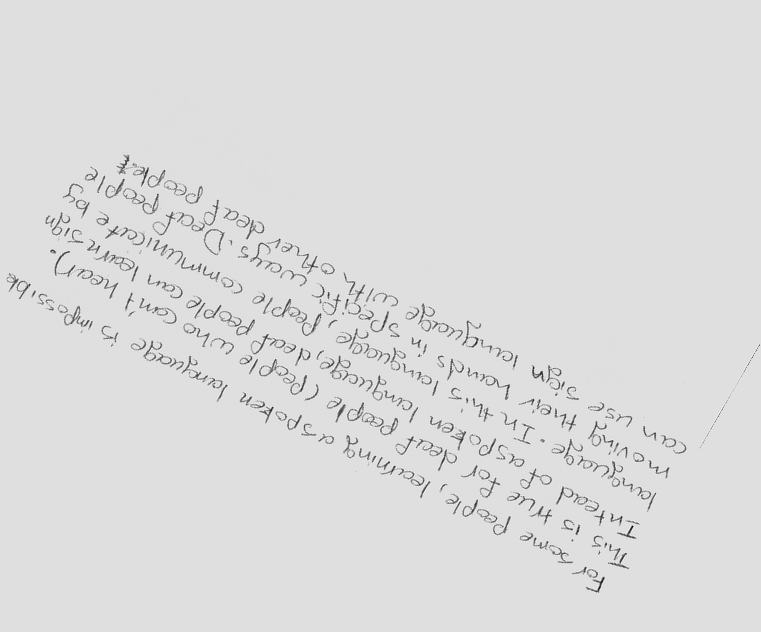 For some people, learning a spoken language is impossible
This is true for deaf people (people who can't hear).
Intead of a spoken language, deaf people can learn sign
language. In this language, people communicate by
moving their hands in specific ways. Deaf people
can use sign language with other deaf people.